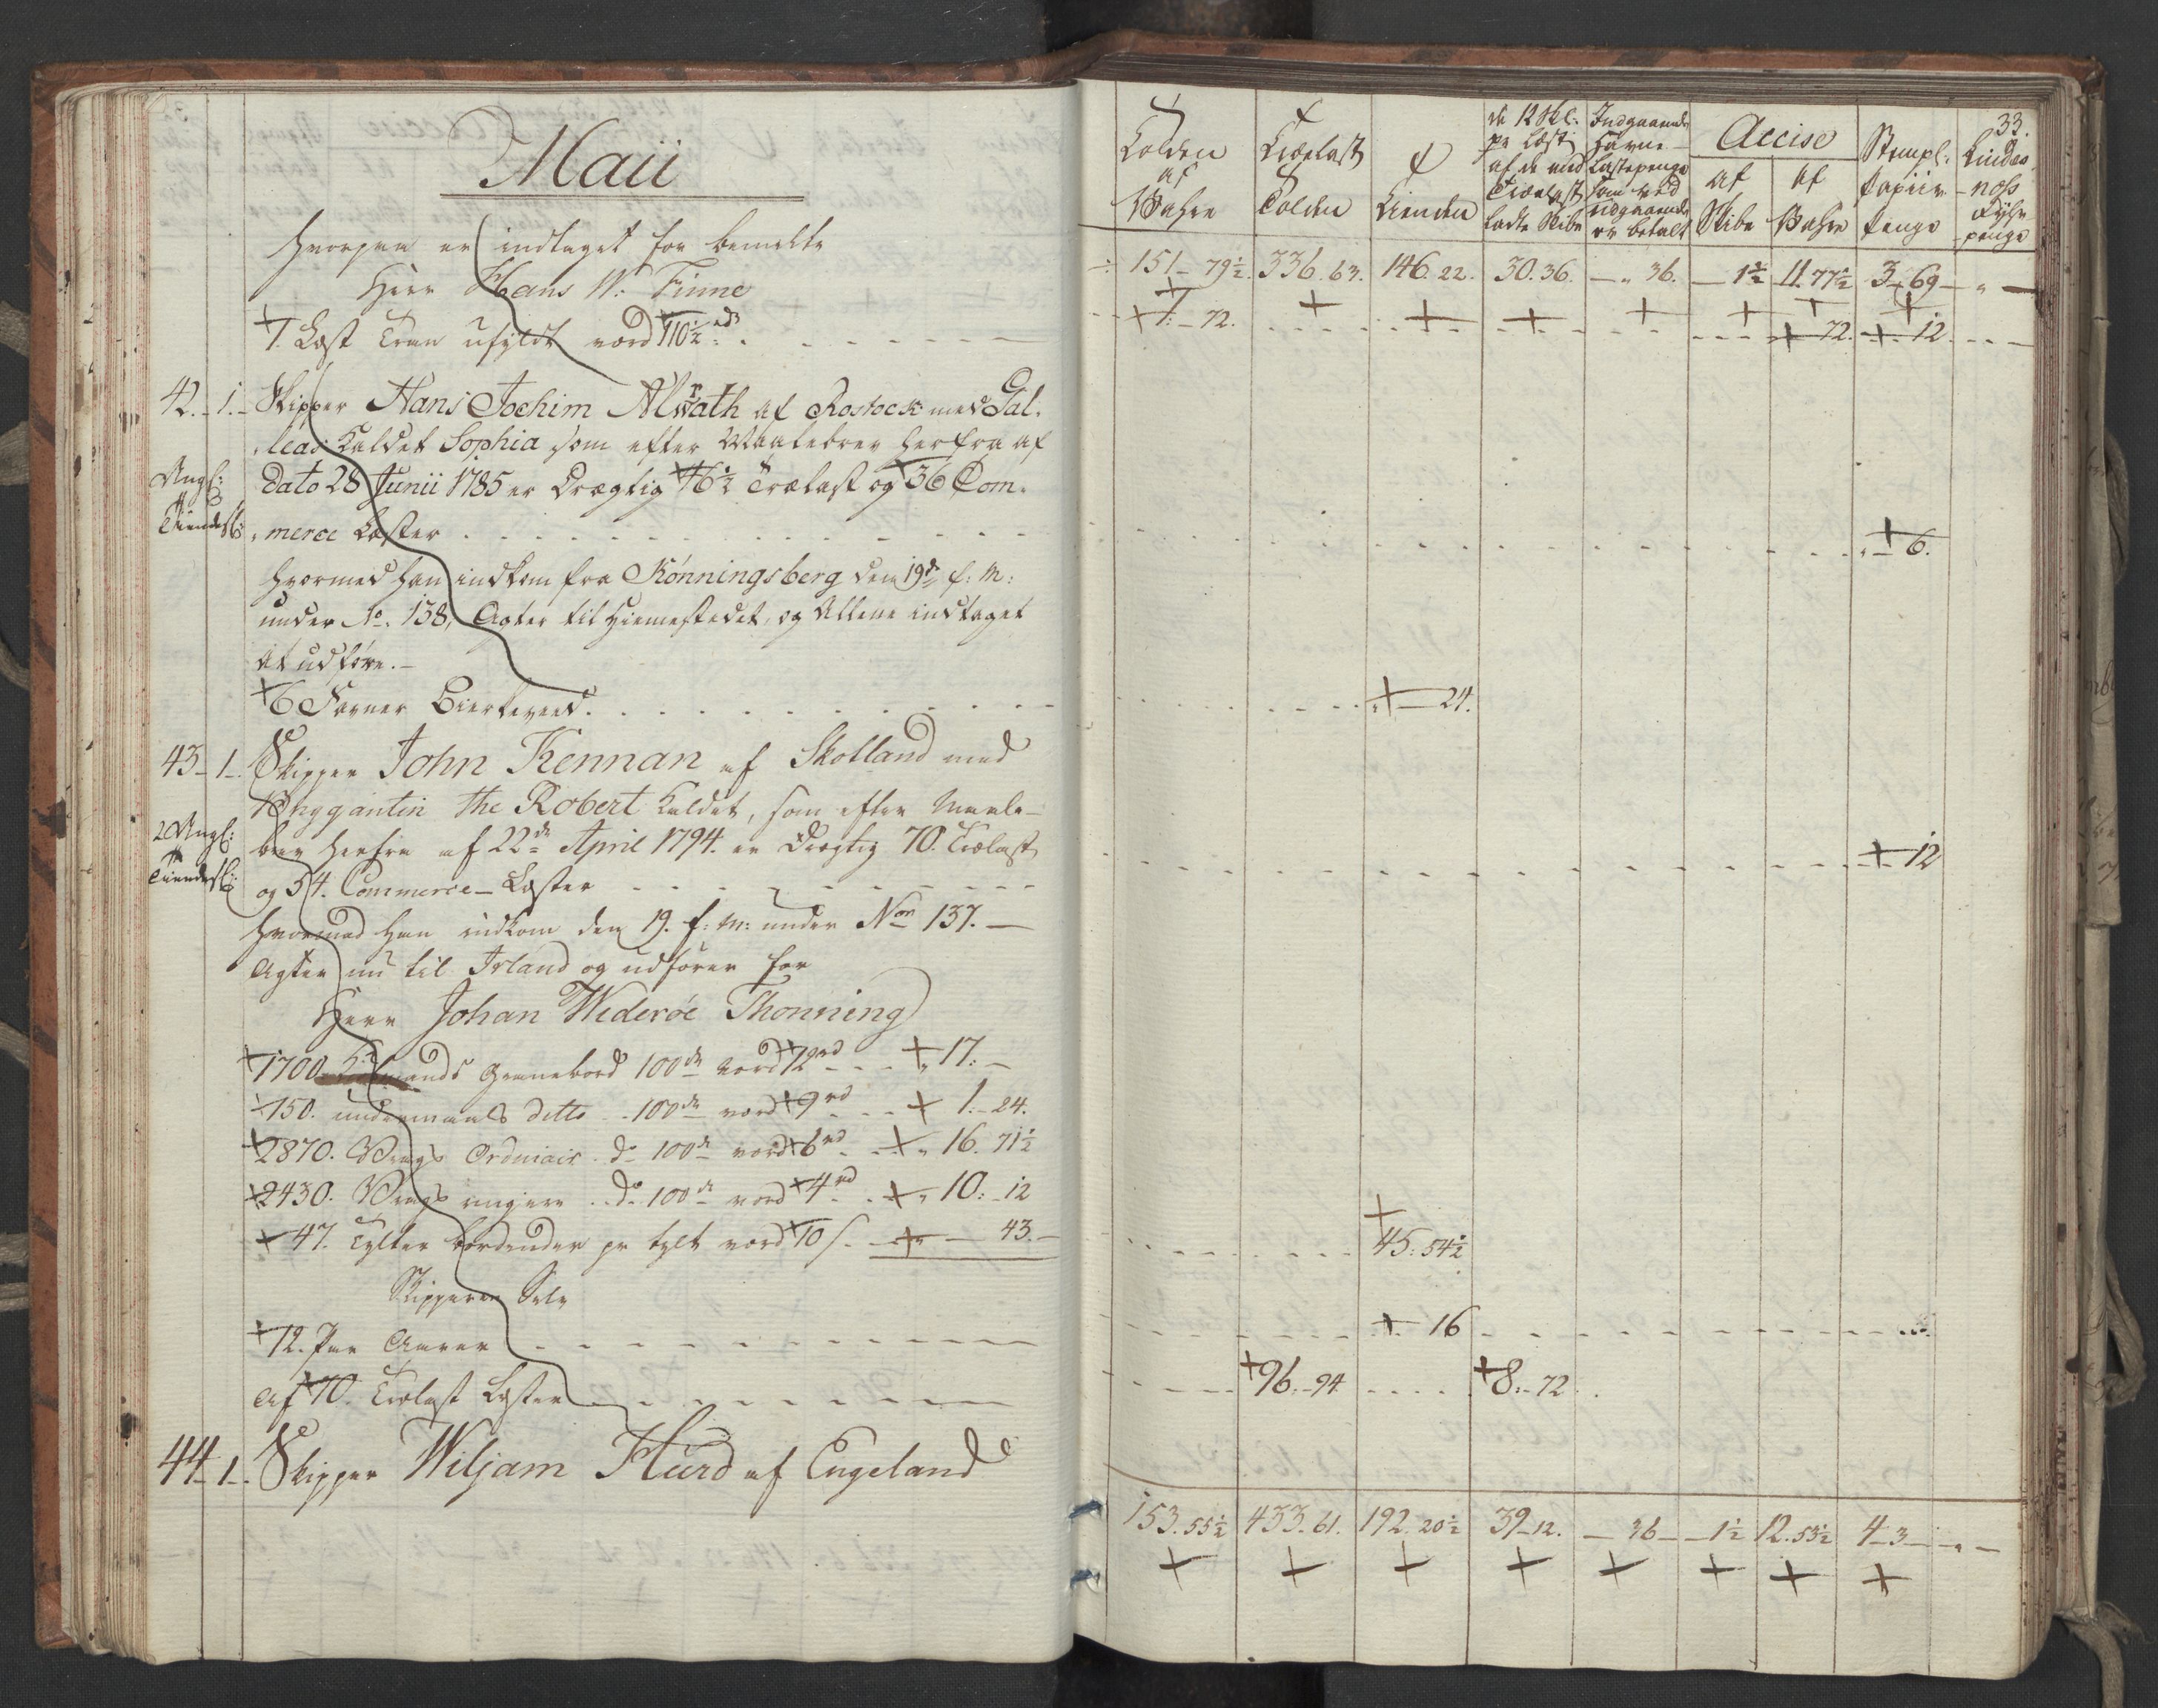 Maii
hvorpaa er indtaget for bemelte
Herr Hans W: Finne
1. Læst Tran ufyldt værd 110½ rd
42. 1. Skipper Hans Jochim Alwrath af Rostock med Gal-
leas Kaldet Sophia som efter Maalebrev herfra af
Dato 28 Junii 1785 er Drægtig 46½ Trælast og 36 Com-
merce Læster
Angl:
Tiendes:
hvormed han indkom fra Kønningsberg den 19de f: M:
under No. 138, Agter til Hiemstedet, og Allene indtaget
at udføre.
6 Favner Birkeveed.
43 1. Skipper John Kennan af Skotland med
Bryggantin the Robert Kaldet, som efter Maale-
brev herfra af 22de April 1794. er Drægtig 70. Trælast
og 54. Commerce-Læster
2 Angl:
Tiendes:
hvormed han indkom den 19. f: M: under No 137.
Agter nu til Irland og udfører for
Herr Johan Wederøe Thonning
1700 Granebord 100de værd 12 rd 17:
150. undermaals ditto 100de værd 9 rd 1. 24.
2870. Vrags Ordinair do 100de værd 6 rd 16. 71½
2430. Vrags ringere do 100de værd 4 rd 10: 12
47. Tylter bordender pr tylt værd 10 s. 43.
Skipperen Selv
12. Par Aarer
Af 70. Trælast Læster
44 1. Skipper Wiljam Hurd af Engeland
33.
Tolden af Vahre
Trælast Tolden
Tienden
de 12 Skl: pr Læst af de med Trælast ladte Skibe
Indgaaende Havne- Lastepenge som ved Udgaaende er betalt
Accise
af Skibe
af Vahre
Stempl: Papiir Penge
Lindesnoss Fyhrpenge
151 79½. 336. 63. 146. 22. 30. 36. 36. 1½ 11. 77½ 3 69
1. 72. 72. 12.
6.
24.
12
45. 54½
16
96. 94 8. 72
153. 55½ 433. 61. 192. 20½ 39 12. 36 1½ 12. 53½ 4 3